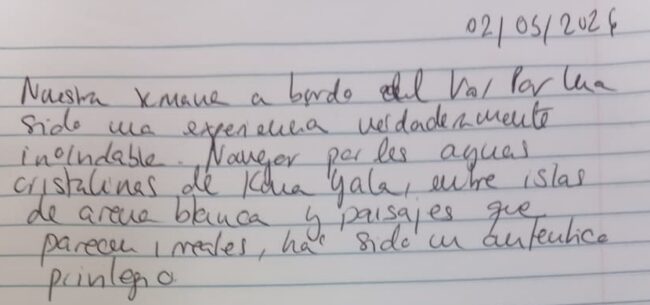 02/05/2026
Nuestra semana a bordo del ha
sido una experiencia verdaderamente
inolvidable. Navegar por las aguas
cristalinas de Guna Yala, entre islas
de arena blanca y paisajes que
parecen irreales, ha sido un auténtico
privilegio